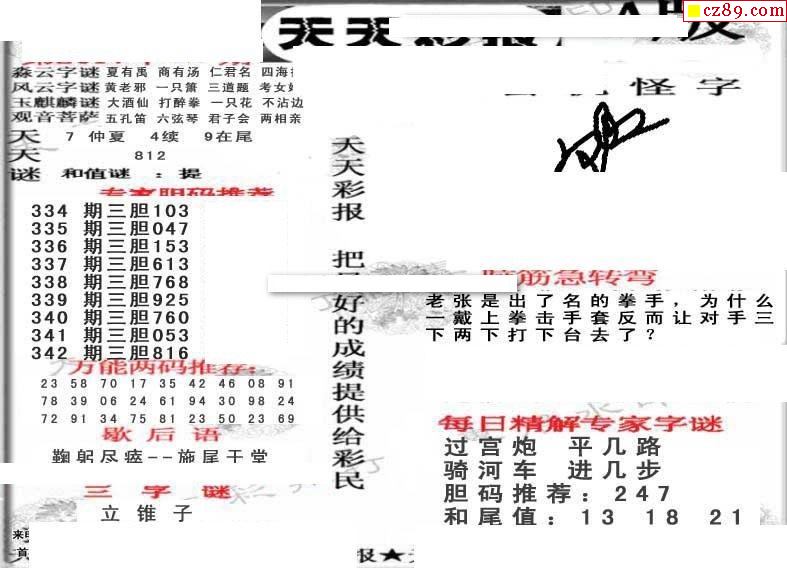 天天彩报
cz89.com
淼云字谜 夏有禹 商有汤 仁君名 四海
风云字谜 黄老邪 一只箫 三道题 考女
玉麒麟谜 大酒仙 打醉拳 一只花 不沾边
观音菩萨 五孔笛 六弦琴 君子会 两相亲
天 7 仲夏 4续 9在尾
天 812
谜 和值谜 : 提
专家胆码推荐
334 期三胆103
335 期三胆047
336 期三胆153
337 期三胆613
338 期三胆768
339 期三胆925
340 期三胆760
341 期三胆053
342 期三胆816
万能两码推荐:
23 58 70 17 35 42 46 08 91
78 39 06 24 61 94 30 98 24
72 91 34 75 81 23 50 23 69
歇后语
鞠躬尽瘁--施尾于堂
三字谜
立锥子
天天彩报 把 好的成绩提供给彩民
怪字
脑筋急转弯
老张是出了名的拳手，为什么
一戴上拳击手套反而让对手三
下两下打下台去了？
每日精解专家字谜
过宫炮 平几路
骑河车 进几步
胆码推荐：247
和尾值：13 18 21
报★